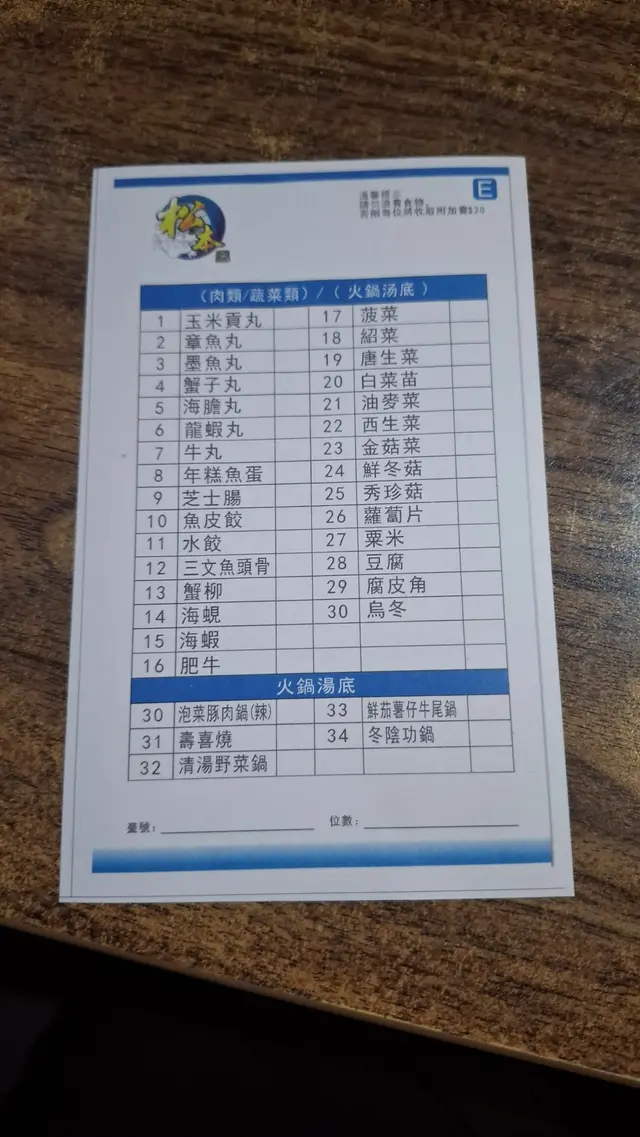 E
溫馨提示
請勿浪費食物,
否則每位將收取附加費$20
松本
(肉類/蔬菜類)/(火鍋汤底)
1 玉米貢丸 17 菠菜
2 章魚丸 18 紹菜
3 墨魚丸 19 唐生菜
4 蟹子丸 20 白菜苗
5 海膽丸 21 油麥菜
6 龍蝦丸 22 西生菜
7 牛丸 23 金菇菜
8 年糕魚蛋 24 鮮冬菇
9 芝士腸 25 秀珍菇
10 魚皮餃 26 蘿蔔片
11 水餃 27 粟米
12 三文魚頭骨 28 豆腐
13 蟹柳 29 腐皮角
14 海蜆 30 烏冬
15 海蝦
16 肥牛
火鍋湯底
30 泡菜豚肉鍋(辣) 33 鮮茄薯仔牛尾鍋
31 壽喜燒 34 冬陰功鍋
32 清湯野菜鍋
臺號: 位數: